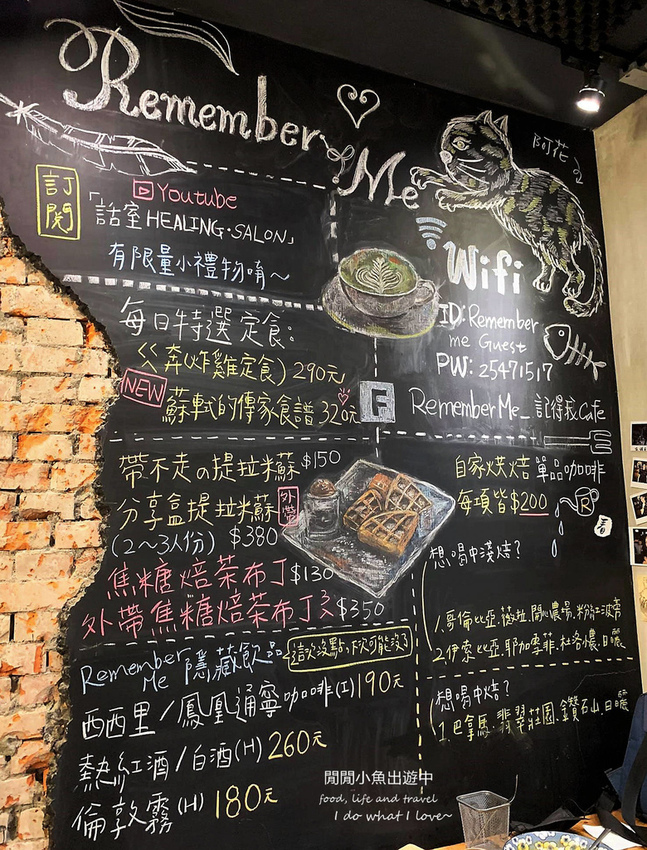 Remember Me
阿花
訂閱
Youtube
「話室 HEALING·SALON」
有限量小禮物唷~
Wifi
ID:Remember
me Guest
PW: 25471517
每日特選定食:
ㄍ奔(炸雞定食) 290元
NEW 蘇軾的傳家食譜 320元
F Remember Me_記得我Cafe
帶不走の提拉米蘇 $150
分享盒提拉米蘇 外帶
(2~3人份) $380
焦糖焙茶布丁 $130
外帶焦糖焙茶布丁 $350
自家烘焙單品咖啡
每項皆$200
想喝中淺焙?
1.哥倫比亞.薇拉.開心農場.粉紅波旁
2.伊索比亞.耶加雪菲.杜洛儂.日曬
想喝中焙?
1.巴拿馬.翡翠莊園.鑽石山.日曬
Remember Me 隱藏飲品
這次沒點,下次可能沒了
西西里/鳳凰通寧咖啡(I) 190元
熱紅酒/白酒(H) 260元
倫敦霧(H) 180元
閒閒小魚出遊中
food, life and travel
I do what I love~